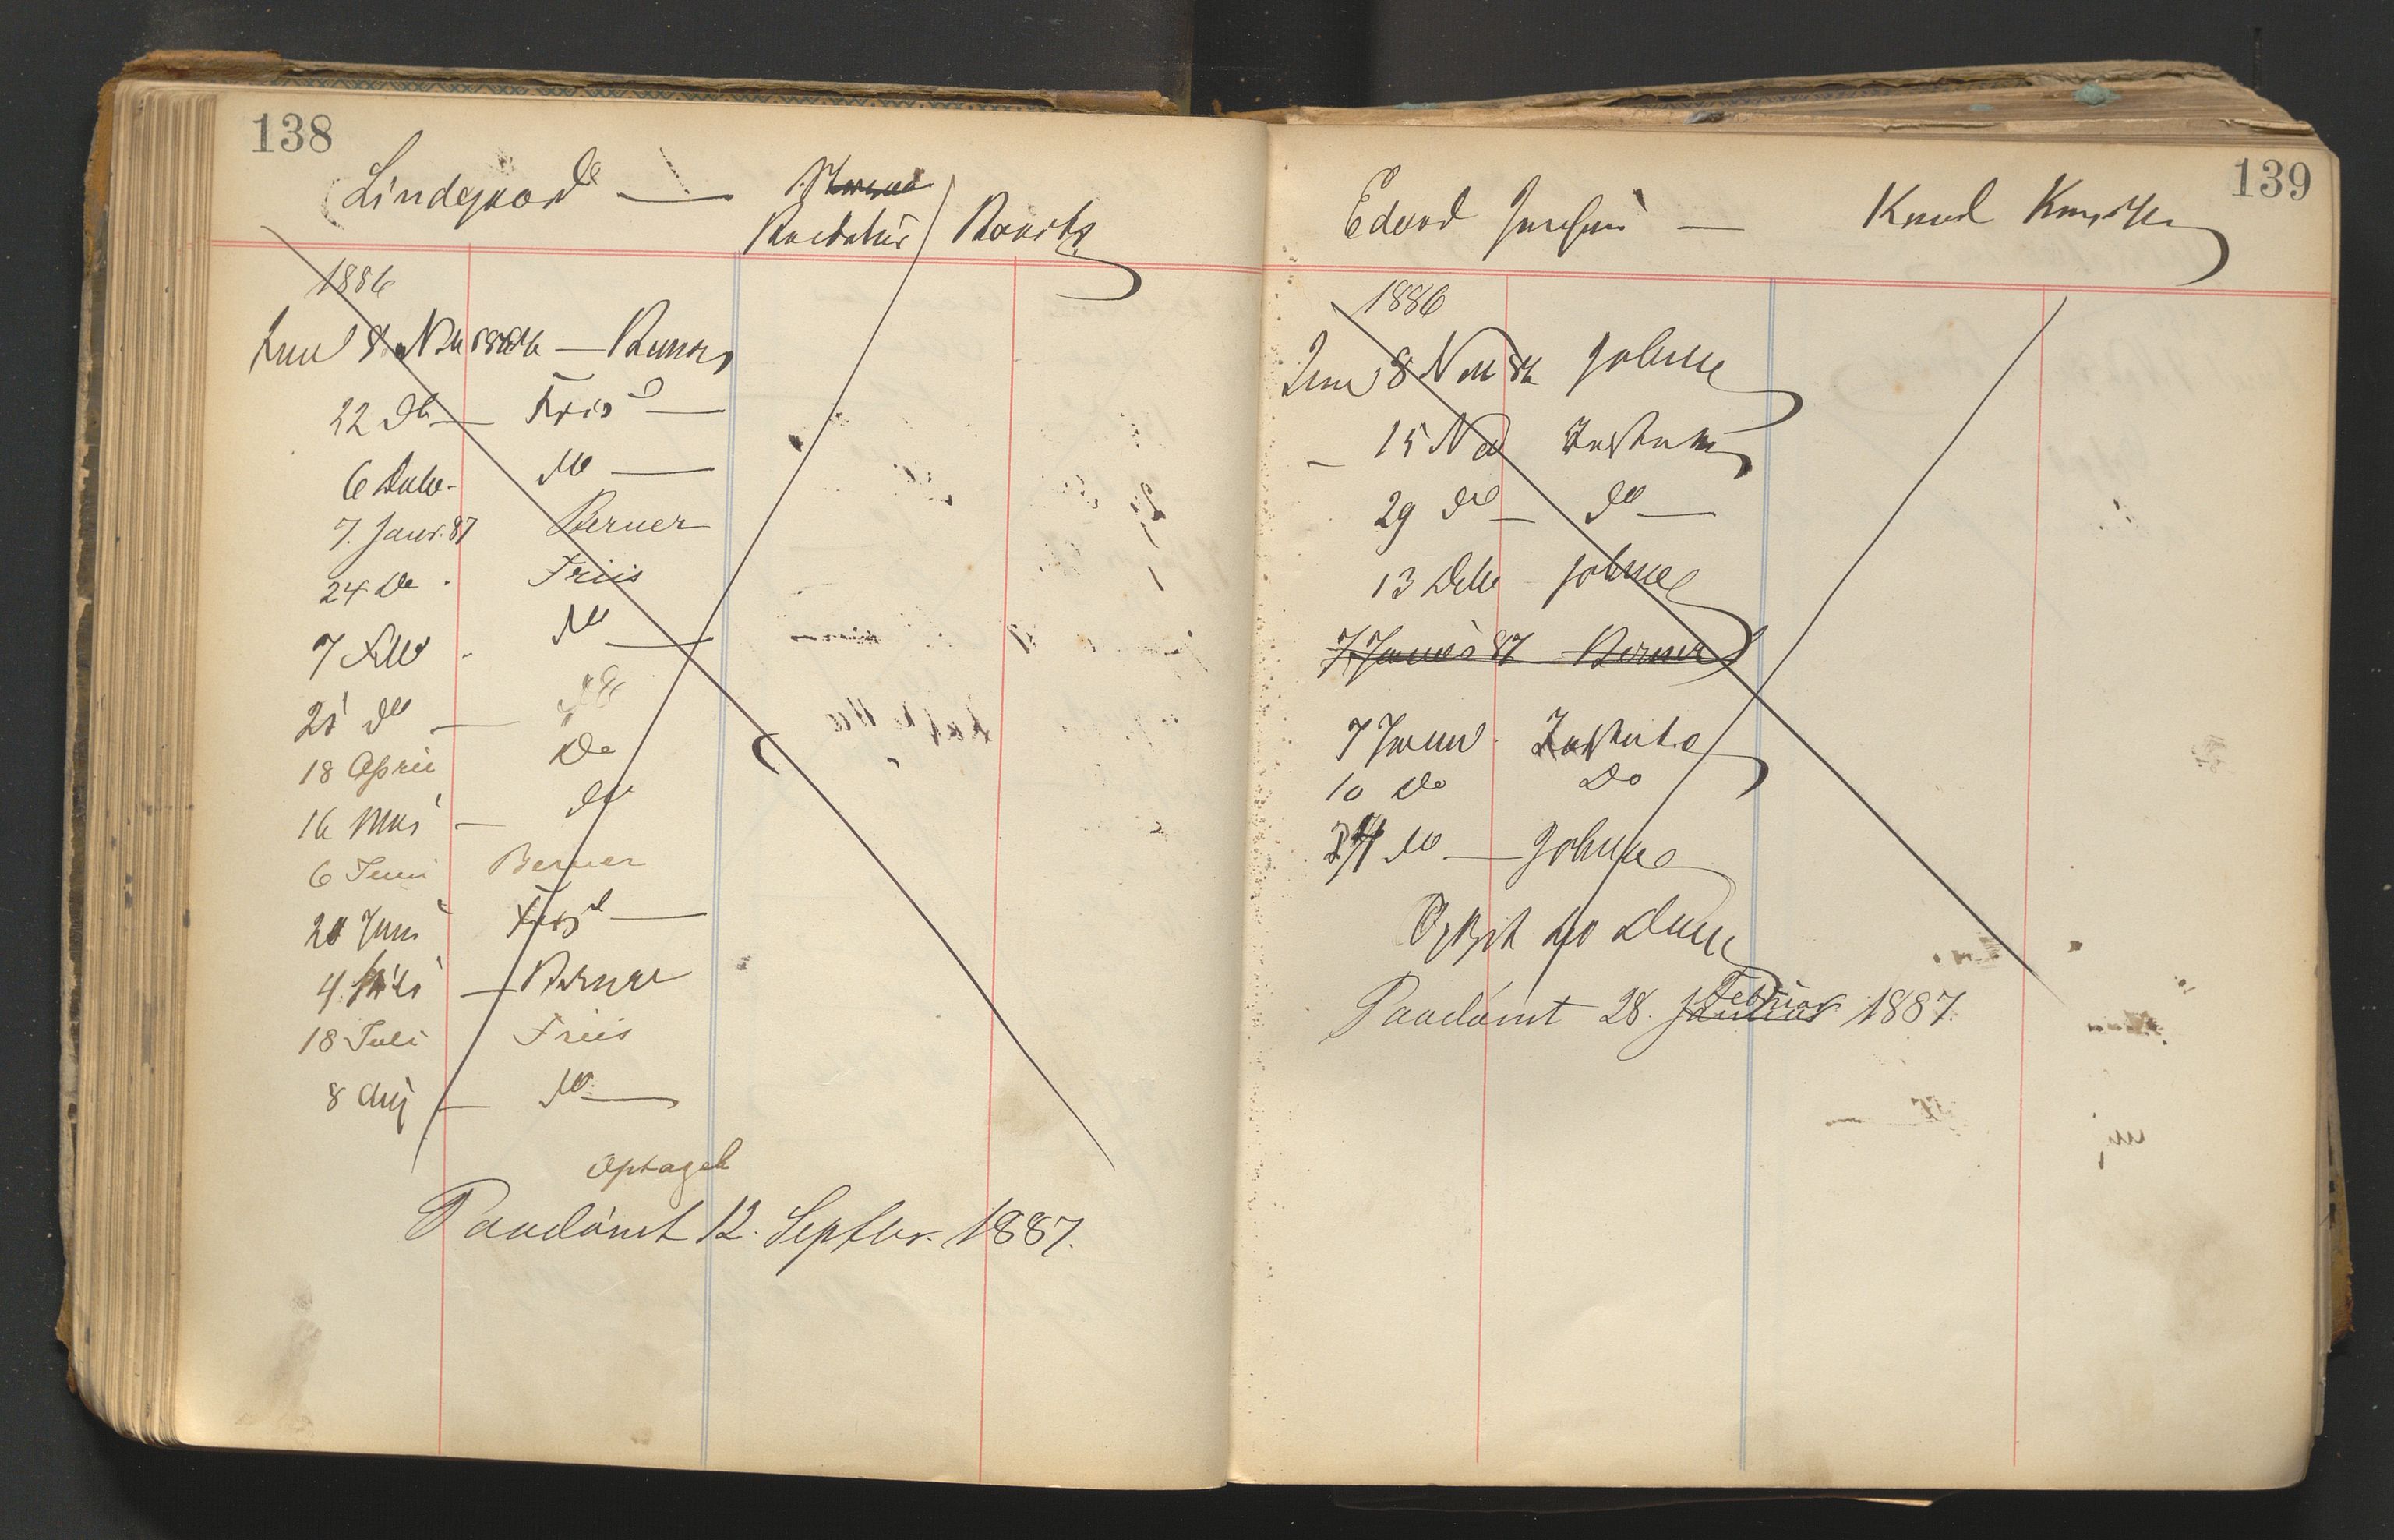 138
Lindegaard —
Redaktør Baarts
1886
8 Nov 1886 — Berner
22 do — Friis
6 Decbr - do —
7. Janr. 87 Berner
24 do . Friis
7 Feb - do —
21 do — do
18 April do
16 Mai — do
6 Juni Berner
20 Juni Friis —
4. Juli — Berner
18 Juli Friis
8 Aug — do —
Optaget
Paadømt 12. Septbr. 1887.
139
Edvard — Knud
1886
8 Nov 86 Johnse
15 Nov
29 do — do —
13 Decbr Johnse
7 Januar 87 Berner
7 Januar
10 do do
24 do — Johnse
til Dom
Paadømt 28. Januar Februar 1887.